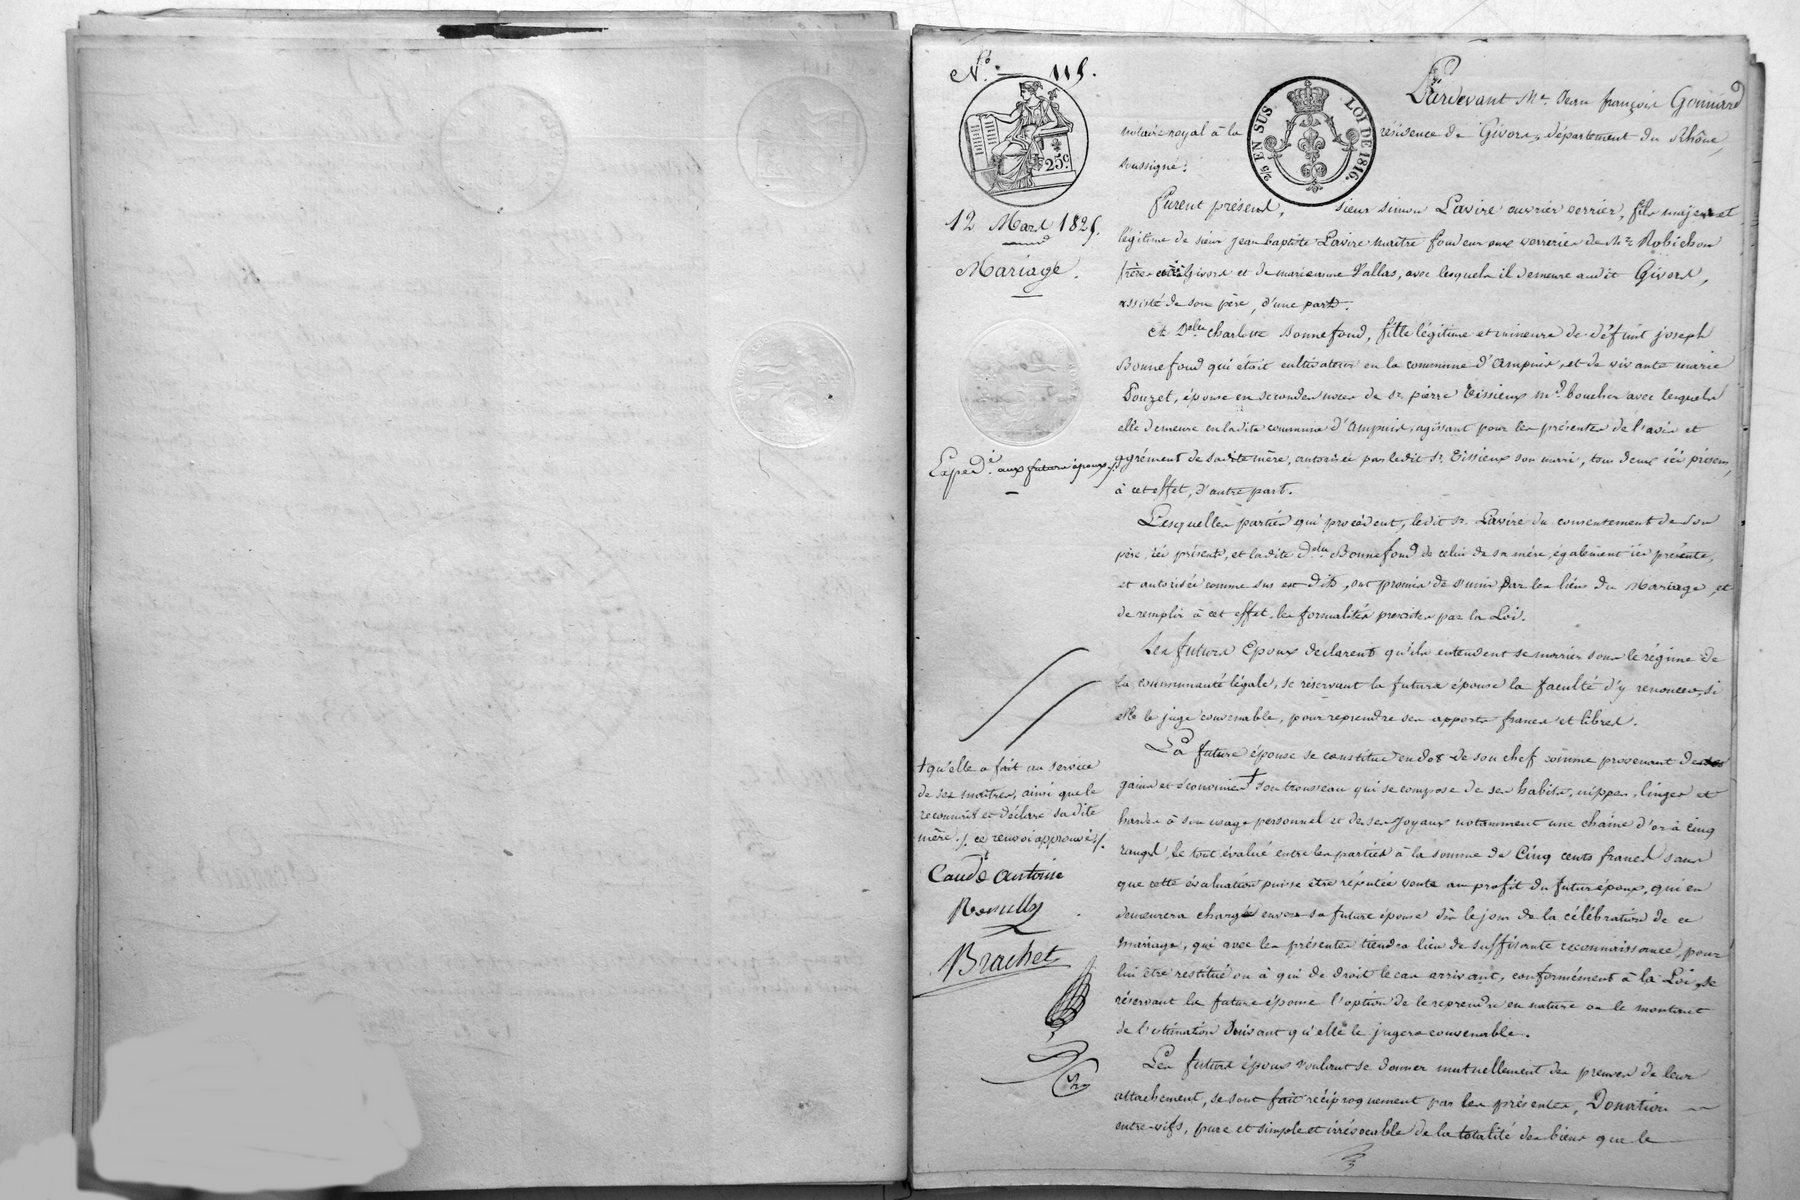 N.º 115.
25.c
2/5 EN SUS
LOI DE 1816.
12 Mars 1825.
Mariage.
Expéd.é aux futurs époux /.
Pardevant Me. Jean françois Gonnard
notaire royal à la résidence de Givors, département du Rhône,
soussigné;
Furent présens, sieur simon Lavire ouvrier verrier, fils majeur et
légitime de sieur jean baptiste Lavire maitre fondeur aux verreries de Mrs Robichon
frères à Givors et de marieanne Vallas, avec lesquels il demeure audit Givors,
assisté de son père, d'une part.
Et Delle charlotte Bonnefond, fille légitime et mineure de défunt joseph
Bonnefond qui était cultivateur en la commune d'Ampuis, et de vivante marie
Pouzet, épouse en secondes noces de sr. pierre Tissieux md. boucher avec lesquels
elle demeure en ladite commune d'Ampuis, agissant pour les présentes de l'avis et
agrément de sadite mère, autorisée par ledit sr. Tissieux son mari, tous deux ici présens,
à cet effet, d'autre part.
Lesquelles parties qui procèdent, ledit sr. Lavire du consentement de son
père, ici présent, et ladite delle. Bonnefond de celui de sa mère, également ici présente,
et autorisée comme sus est dit, ont promis de s'unir par les liens du Mariage, et
de remplir à cet effet, les formalités prescrites par la Loi.
Les futurs Epoux déclarent qu'ils entendent se marier sous le régime de
la communauté légale, se réservant la future épouse la faculté d'y renoncer, si
elle le juge convenable, pour reprendre ses apports francs et libres.
La future épouse se constitue en dot de son chef comme provenant de ses
gains et économies + son trousseau qui se compose de ses habits, nippes, linges et
hardes à son usage personnel et de ses Joyaux notamment une chaîne d'or à cinq
rangs, le tout évalué entre les parties à la somme de Cinq cents francs sans
que cette évaluation puisse être réputée vente au profit du futur époux, qui en
demeurera chargé envers sa future épouse dès le jour de la célébration de ce
mariage, qui avec les présentes tiendra lieu de suffisante reconnaissance, pour
lui être restitué ou à qui de droit le cas arrivant, conformément à la Loi, se
réservant la future épouse l'option de le reprendre en nature ou le montant
de l'estimation suivant qu'elle le jugera convenable.
Les futurs époux voulant se donner mutuellement des preuves de leur
attachement, se sont fait réciproquement par les présentes, Donation
entre-vifs, pure et simple et irrévocable de la totalité des biens que le
+ qu'elle a fait au service
de ses maîtres, ainsi que le
reconnait et déclare sadite
mère /. ce renvoi approuvé /.
Brachet